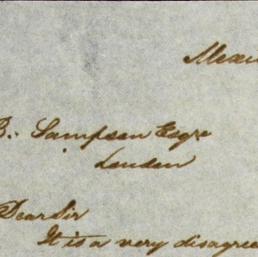 Mexi
B: Sampson Esqre
London
Dear Sir
It is a very disagree